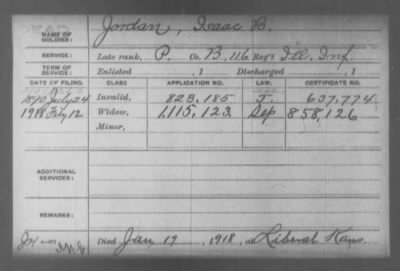 NAME OF SOLDIER: Jordan, Isaac B.
SERVICE: Late rank, P. Co. B, 116 Reg't Ill. Inf.
TERM OF SERVICE: Enlisted , 1 Discharged , 1
DATE OF FILING. CLASS APPLICATION NO. LAW. CERTIFICATE NO.
1890 July 24 Invalid, 823,185 J. 637,774
1918 Feb 12 Widow, 1,115,123 Dep 858,126
Minor,
ADDITIONAL SERVICES:
REMARKS:
Died Jan 19, 1918, at Liberal Kans.